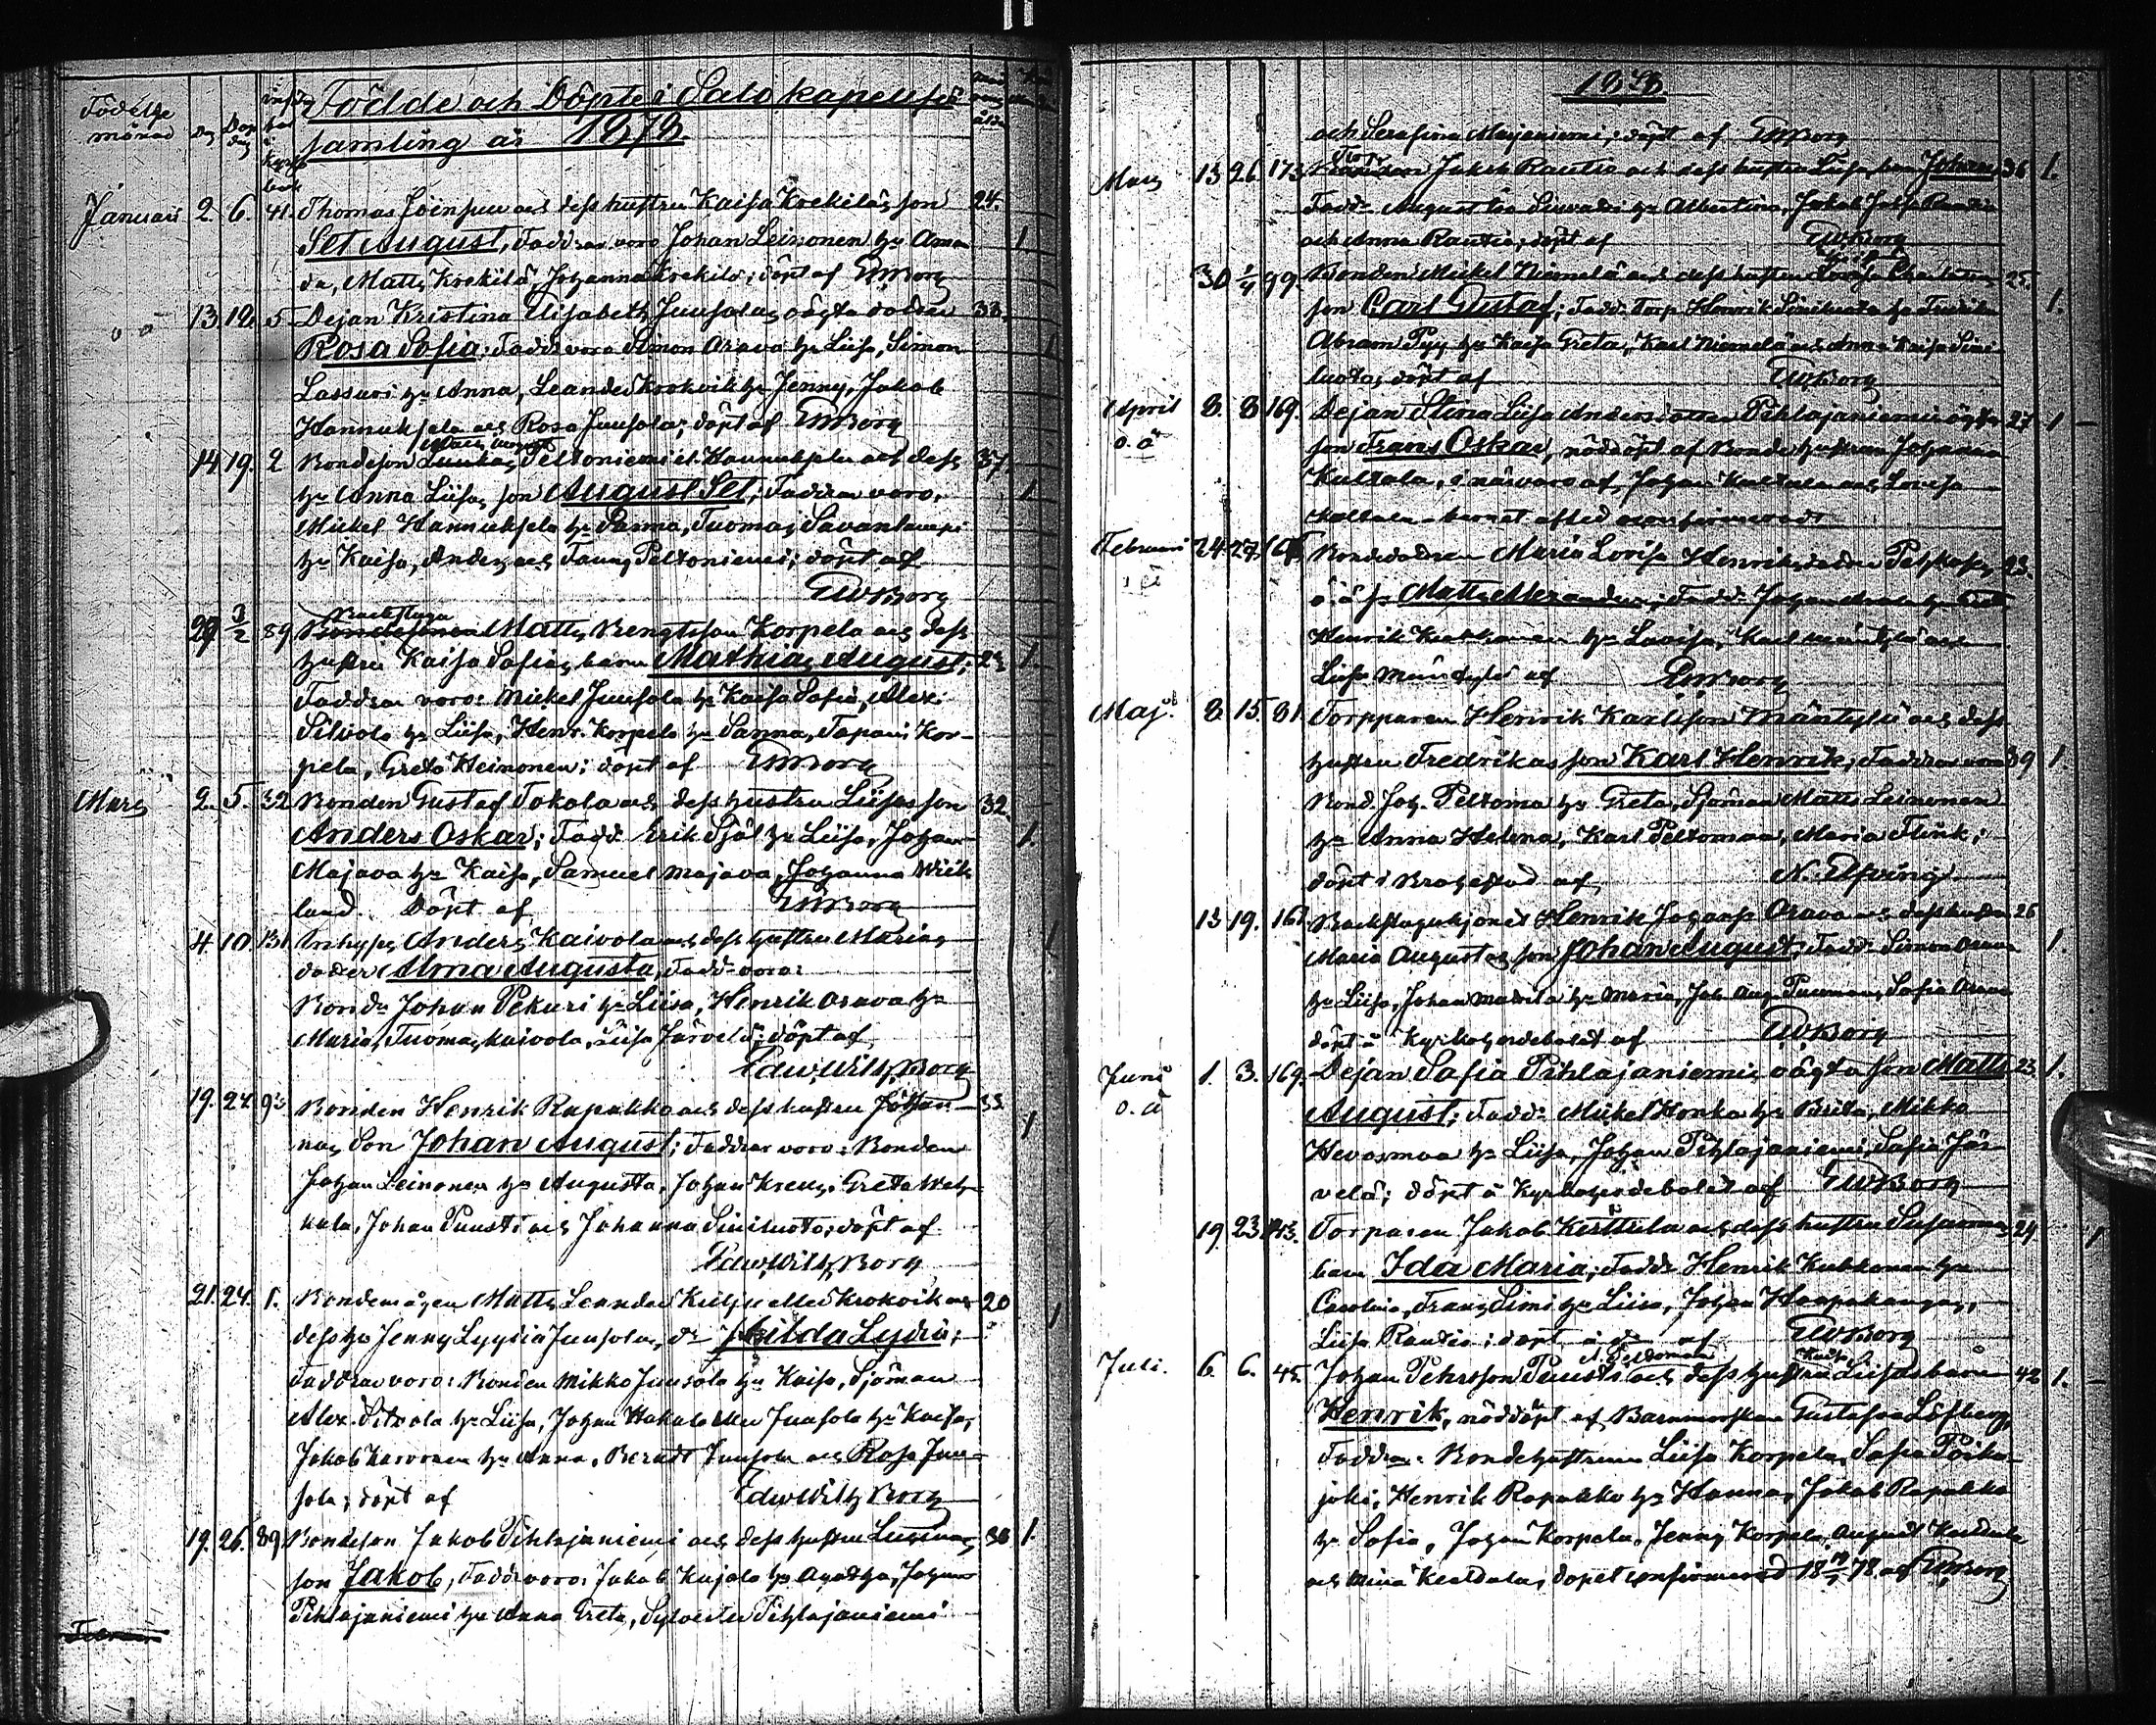 Födelse månad Dag Döp dag
Födde och Döpte i Salo kapellför
samling år 1878.
Januari 2 6. 41. Thomas Joensuu och dess hustru Kaisa Krekiläs son 24.
Set August, Faddrar voro Johan Leinonen h:u Aman 1
da, Matts Krekilä, Johanna Krekilä; döpt af EWBorg
o ä 13. 19. 5 Dejan Kristina Elisabeth Junsolas oägta dotter 33.
Rosa Sofia; Fadd: voro Simon Arava h:u Liisa, Simon 1
Lassuri h:u Anna, Leander Krokvik h:u Jenny, Jakob
Hannuksela och Rosa Junsola; döpt af EWBorg
14. 19. 2 Bondeson Peltoniemi el. Hannuksela och dess 37.
h:u Anna Liisas son August Set; Faddrar voro, 1
Mickel Hannuksela h:u Sanna, Tuomas Savanlampi
h:u Kaisa, Anders och Fanny Peltoniemi; döpt af
EWBorg
29. 3/2 89 Backstuga Matts Bengtsson Korpela och dess
hustru Kaisa Sofias barn Mathias August; 23 1.
Faddrar voro: Mickel Junsola h:u Kaisa Sofia, Alex:
Silvola h:u Liisa, Henr. Korpela h:u Sanna, Tapani Kor-
pela, Greta Heinonen; döpt af EWBorg
Mars 2. 5. 32 Bonden Gustaf Tokola och dess hustru Liisas son 32.
Anders Oskar; Fadd: Erik Själ h:u Liisa, Johan 1.
Majava h:u Kaisa, Samuel Majava, Johanna Wiik
lund. Döpt af EWBorg
4. 10. 131 Inhyses Anders Kaivola och dess hustru Marias 1
dotter Alma Augusta, Fadd: voro:
Bond: Johan Pekuri h:u Liisa, Henrik Arava h:u
Maria, Tuomas Kaivola, Liisa Järvelä; döpt af
Edw. Wilh. Borg
19. 24. 93 Bonden Henrik Rapakko och dess hustru Johan- 33.
nas Son Johan August; Faddrar voro: Bonden 1
Johan Leinonen h:u Augusta, Johan Kreus, Greta Weh-
kala, Johan Puusti och Johanna Siniluoto; döpt af
Edw. Wilh. Borg
21. 24. 1. Bondemågen Matts Leander eller Krokvik och 20
dess h:u Jenny Lyydia Junsolas d:r Hilda Lydia; 1
Faddrar voro: Bonden Mikko Junsola h:u Kaisa, Sjöman
Alex. Silvola h:u Liisa, Johan Hakala eller Junsola h:u Kaisa,
Jakob Karvonen h:u Anna, Berndt Junsola och Rosa Jun-
sola; döpt af Edw Wilh Borg
19. 26. 89 Bondeson Jakob Pihlajaniemi och dess hustru 30 1.
son Jakob, Fadd: voro: Jakob Kujala h:u Agatha, Johan
Pihlajaniemi h:u Anna Greta, Sylvester Pihlajaniemi
1878.
och Serafina Marjaniemi; döpt af EWBorg
Mars 13 26. 173 Jakob Rautio och dess hustru Liisas barn Johan, 36 1.
Fadd: August h:u Albertina, Jakob Rautio
och Anna Rautio; döpt af EWBorg
30 1/4 99. Bonden Mickel Niemelä och dess hustru 25.
son Carl Gustaf; Fadd: Torp. Henrik Siniluoto h:u Fredrika 1.
Abram Pyy h:u Kaisa Greta, Karl Niemelä och Anna Kaisa Sini-
luoto, döpt af EWBorg
April o. ä 8. 8 169. Dejan Stina Liisa Pihlajaniemis oägta 27 1 -
son Frans Oskar, nöddöpt af Bondehustrun Johanna
Kultala, i närvaro af Johan Kultala och Lovisa
Kultala - barnet afled
Februari 24. 27. Bondedottren Maria Lovisa Henriksdotter 23.
o. ä. s. Matts Alexander; Fadd: Johan
Henrik h:u Lovisa, Karl Mäntylä och
Liisa Mäntylä af EWBorg
Maj. 8. 15. 81. Torpparen Henrik Karlsson Mäntylä och dess
hustru Fredrikas son Karl Henrik; Faddrar voro 39 1.
Bond. Joh. Peltoma h:u Greta, Sjöman Matts Leinonen
h:u Anna Helena, Karl Peltomaa, Maria Flink;
döpt i Brahestad af N. Elfving
13 19. Backstuguhjonet Henrik Johanss. Orava och dess hustru 26
Maria Augustas son Johan August, Fadd: Simon Orava 1
h:u Liisa, Johan h:u Maria, Joh. Aug. Sofia Orava
döpt å Kyrkoherdebolet af EWBorg
Juni o. ä 1. 3. 169. Dejan Sofia Pihlajaniemis oägta son Matts 23. 1.
August; Fadd: Mickel Honka h:u Brita, Mikko
Hevosmaa h:u Liisa, Johan Pihlajaniemi, Sofia Jär-
velä; döpt å Kyrkoherdebolet af EWBorg
19. 23. Torparen Jakob Kerttula och dess hustru Susannas 24
barn Ida Maria; Fadd: Henrik h:u 1
Carolina, Frans Simi h:u Liisa, Johan Haapakangas,
Liisa Rautio; döpt af EWBorg
Juli. 6. 6. 45. Johan Pehrsson Puusti och dess hustru Liisas barn 42 1. -
Henrik, nöddöpt af Barnmorskan Gustafva Löfberg,
Faddrar: Bondehustrun Liisa Korpela, Sofia Poika-
joki, Henrik Rapakko h:u Hanna, Jakob Rapakko
h:u Sofia, Johan Korpela, Jenny Korpela, August
och Mina döpet confirmerad 78 af EWBorg